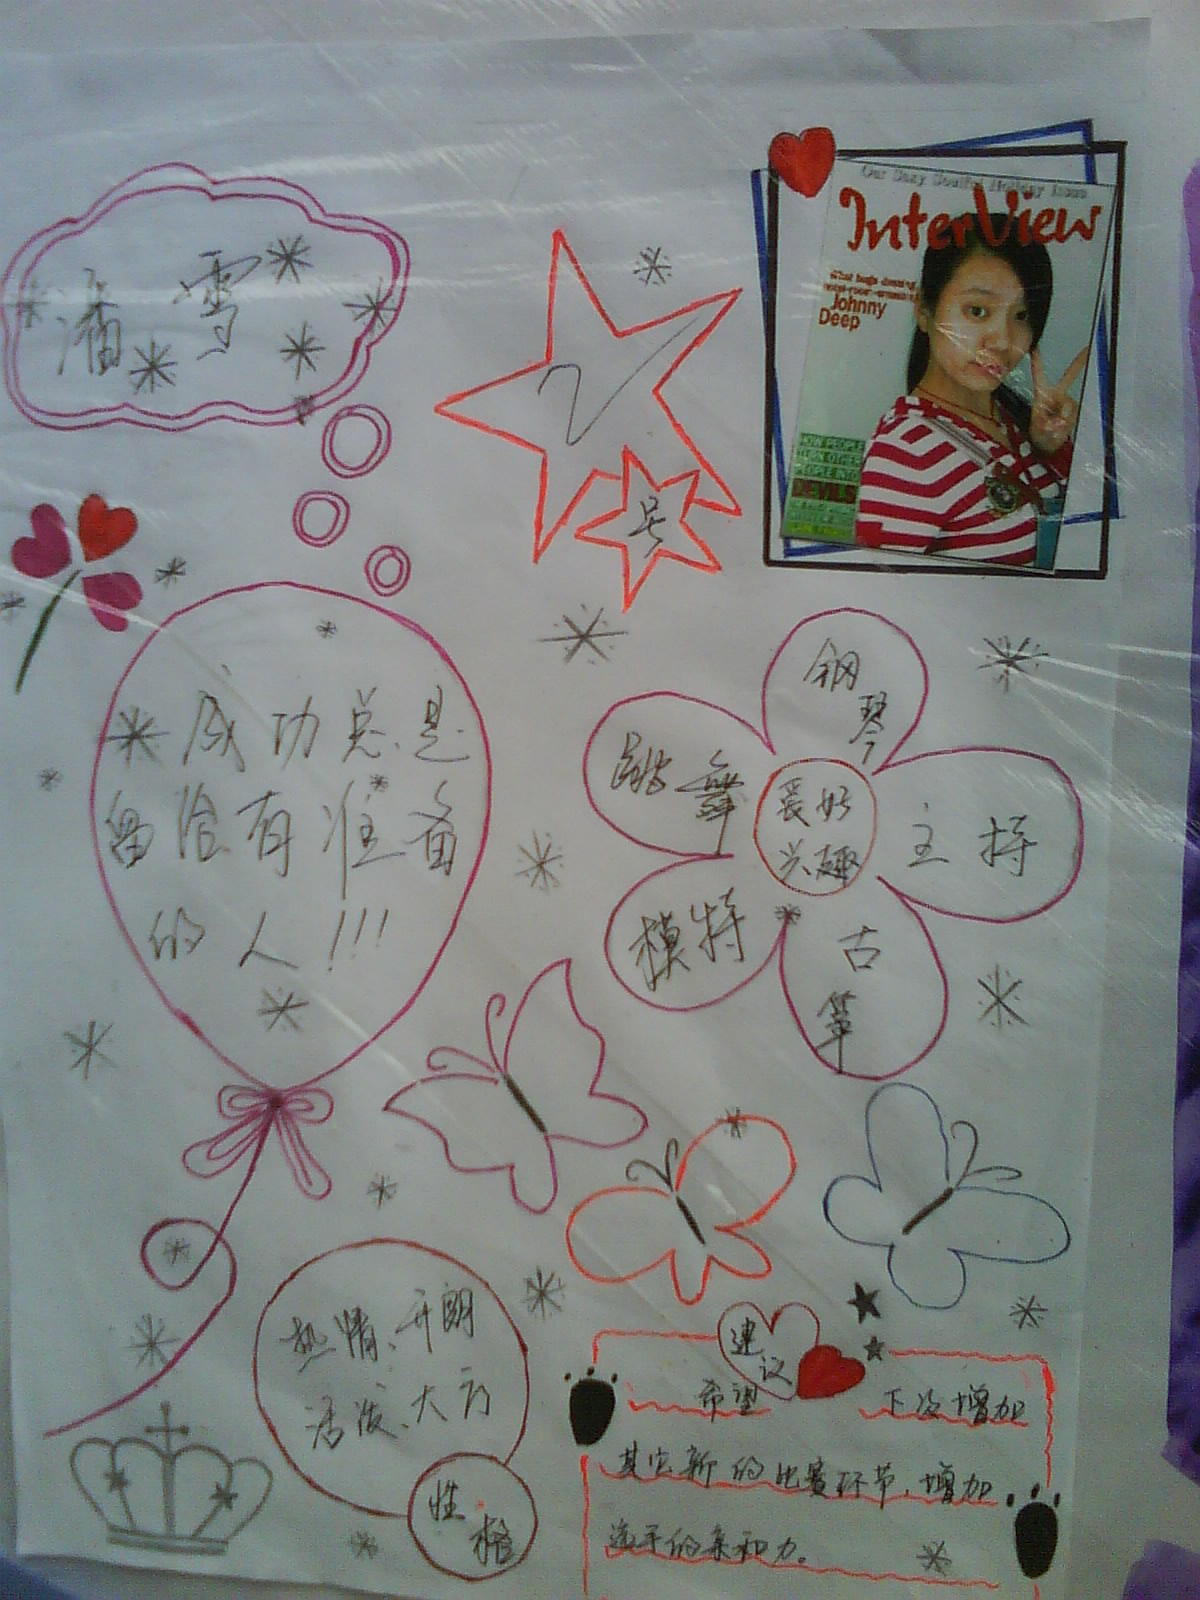 潘雪
2
号
Our Sexy Soulful Holiday Issue
InterView
Johnny
Deep
HOW PEOPLE
TURN OTHER
PEOPLE INTO
DEVILS
成功总是
留给有准备
的人!!!
钢
琴
跳舞
爱好
兴趣
主持
模特
古
筝
热情、开朗
活泼、大方
性
格
建
议
希望 下次增加
其它新的比赛环节,增加
选手的亲和力。